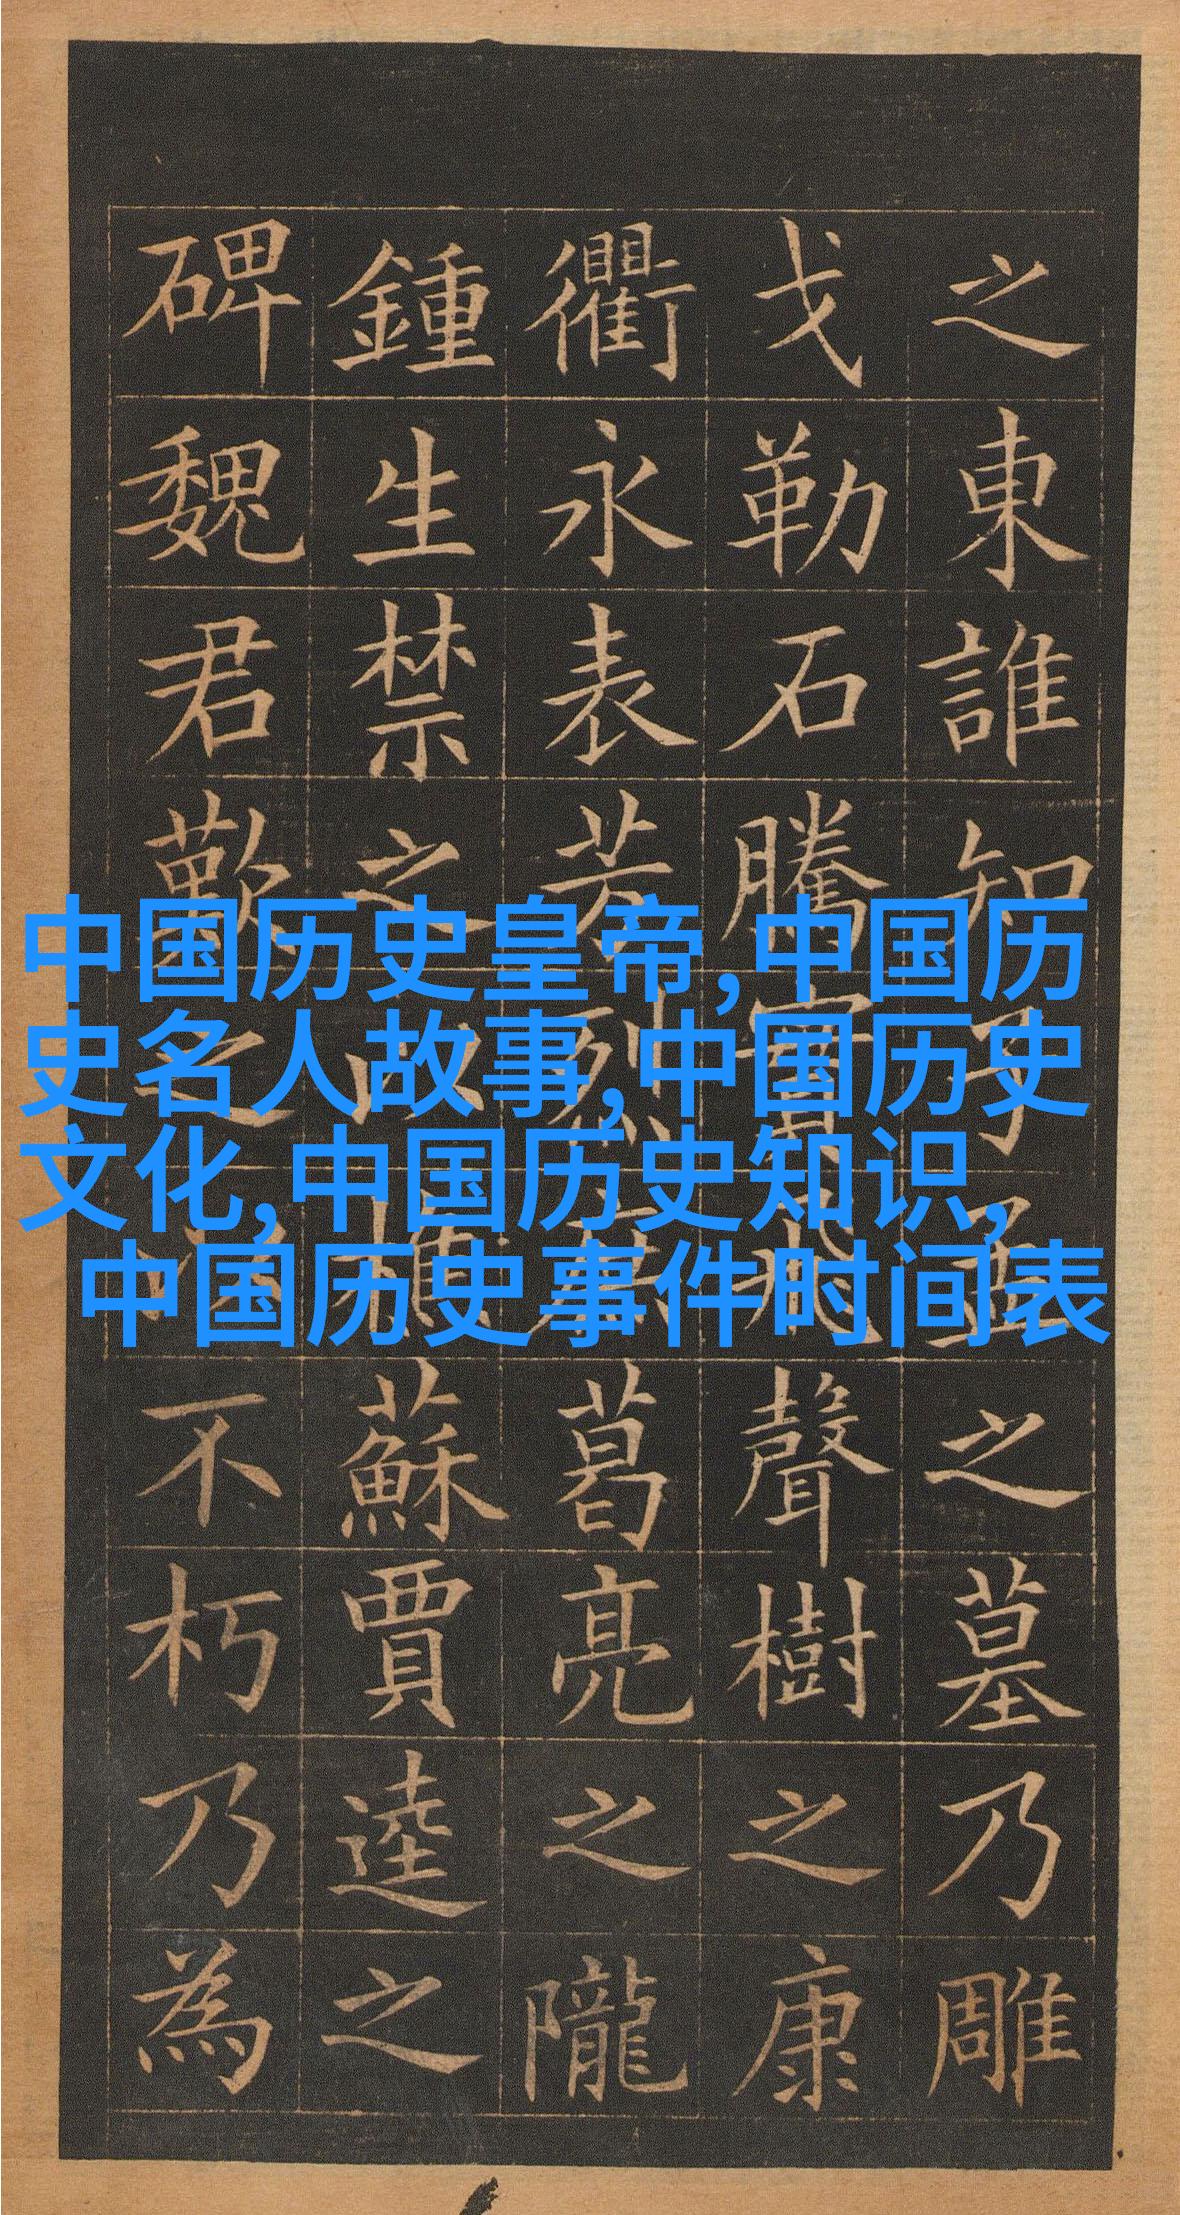 中国历史皇帝,中国历
史名人故事,中国历史
文化,中国历史知识,
中国历史事件时间表
之東誰知子孟之墓乃雕
戈勒石騰實飛聲樹之康
衢永表芳烈庶葛亮之隴
鍾生禁之以樵蘇賈逵之
碑魏君歎之不朽乃為